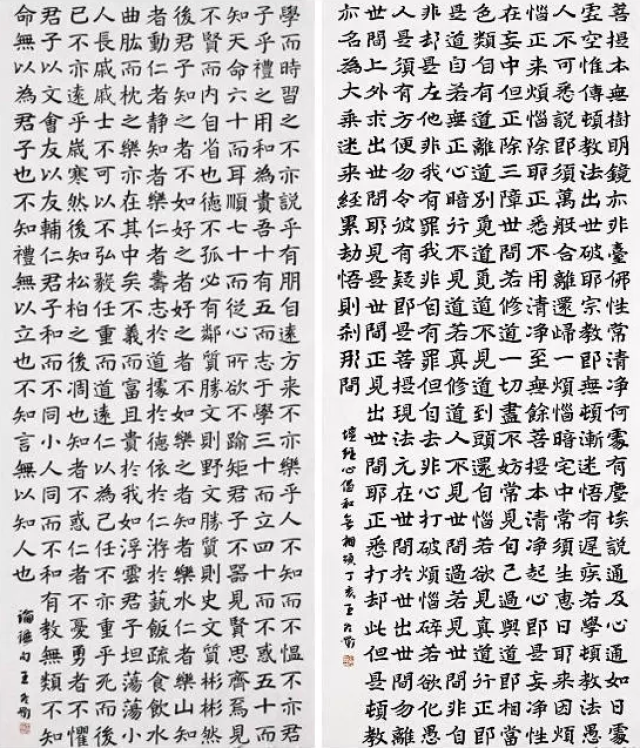 菩提本無樹明鏡亦非臺佛性常清淨何有塵埃說通及心通如日處
虛空惟傳頓教法出世破耶宗教即無頓漸迷悟有遲疾若學頓教法愚
人不可悉說即須萬般合離還歸一煩惱暗宅中常須生惠日耶來因煩
惱正來煩惱除耶正悉不用清淨至無餘菩提本清淨起心即是妄淨性
在妄中但正除三障世間若修道一切盡不妨常見自己過與道即相當
色類自有道離道別覓道覓道不見道到頭還自惱若欲見真道行正即
是道自若無正心暗行不見道若真修道人不見世間愚若見世間
非却是左他非我有罪我非自有罪但自去非心打破煩惱碎若欲化愚
人是須有方便勿令彼有疑即是菩提現法元在世間於世出世間勿離
世間上外求出世間耶見是世間正見出世間耶正悉打却此但是頓教
亦名為大乘迷來經累劫悟則剎那間
壇經心偈和無相頌丁亥王
學而時習之不亦說乎有朋自遠方來不亦樂乎人不知而不慍不亦君
子乎禮之用和為貴吾十有五而志于學三十而立四十而不惑五十而
知天命六十而耳順七十而從心所欲不踰矩君子不器見賢思齊焉見
不賢而內自省也德不孤必有鄰質勝文則野文勝質則史文質彬彬然
後君子知之者不如好之者好之者不如樂之者知者樂水仁者樂山知
者動仁者靜知者樂仁者壽志於道據於德依於仁游於藝飯疏食飲水
曲肱而枕之樂亦在其中矣不義而富且貴於我如浮雲君子坦蕩蕩小
人長戚戚士不可不弘毅任重而道遠仁以為己任不亦重乎死而後
已不亦遠乎歲寒然後知松柏之後凋也知者不惑仁者不憂勇者不懼
君子以文會友以友輔仁君子和而不同小人同而不和有教無類不知
命無以為君子也不知禮無以立也不知言無以知人也
論語句王